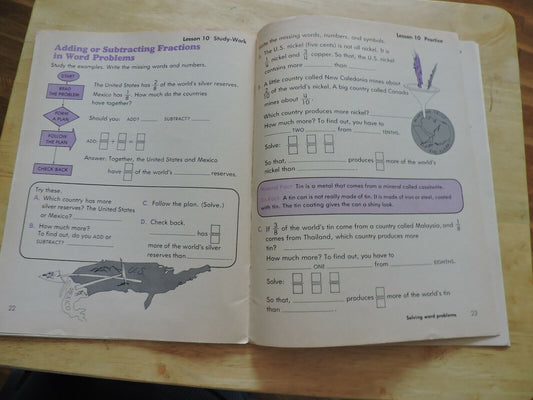 Lesson 10 Study-Work
Adding or Subtracting Fractions
in Word Problems
Study the examples. Write the missing words and numbers.
START
READ
THE PROBLEM
FORM
A PLAN
FOLLOW
THE PLAN
CHECK BACK
The United States has of the world's silver reserves.
Mexico has . How much do the countries
have together?
Should you: ADD? SUBTRACT?
ADD: + =
Answer: Together, the United States and Mexico
have of the world's reserves.
Try these.
A. Which country has more
silver reserves? The United States
or Mexico?
B. How much more?
To find out, do you ADD or
SUBTRACT?
C. Follow the plan. (Solve.)
D. Check back.
has
more of the world's silver
reserves than
U.S.
MEXICO
22
Lesson 10 Practice
the missing words, numbers, and symbols.
The U.S. nickel (five cents) is not all nickel. It is
nickel and 3/4 copper. So that, the U.S. nickel
contains more than
A little country called New Caledonia mines about
of the world's nickel. A big country called Canada
mines about 4/10.
Which country produces more nickel?
How much more? To find out, you have to
TWO from TENTHS.
Solve:
So that, produces more of the world's
nickel than
Mineral Fact: Tin is a metal that comes from a mineral called cassiterite.
A tin can is not really made of tin. It is made of iron or steel, coated
with tin. The tin coating gives the can a shiny look.
C. If 3/8 of the world's tin come from a country called Malaysia, and 1/8
comes from Thailand, which country produces more
tin?
How much more? To find out, you have to
ONE from EIGHTHS.
Solve:
So that, produces more of the world's tin
than
Solving word problems 23